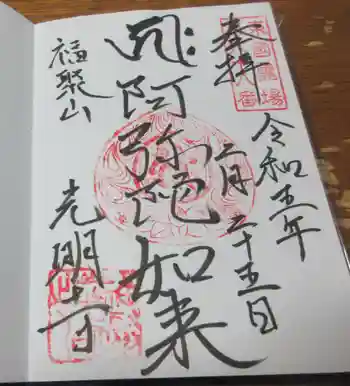 奉拝
令和五年
二月二十五日
阿弥陀如来
福聚山
光明寺